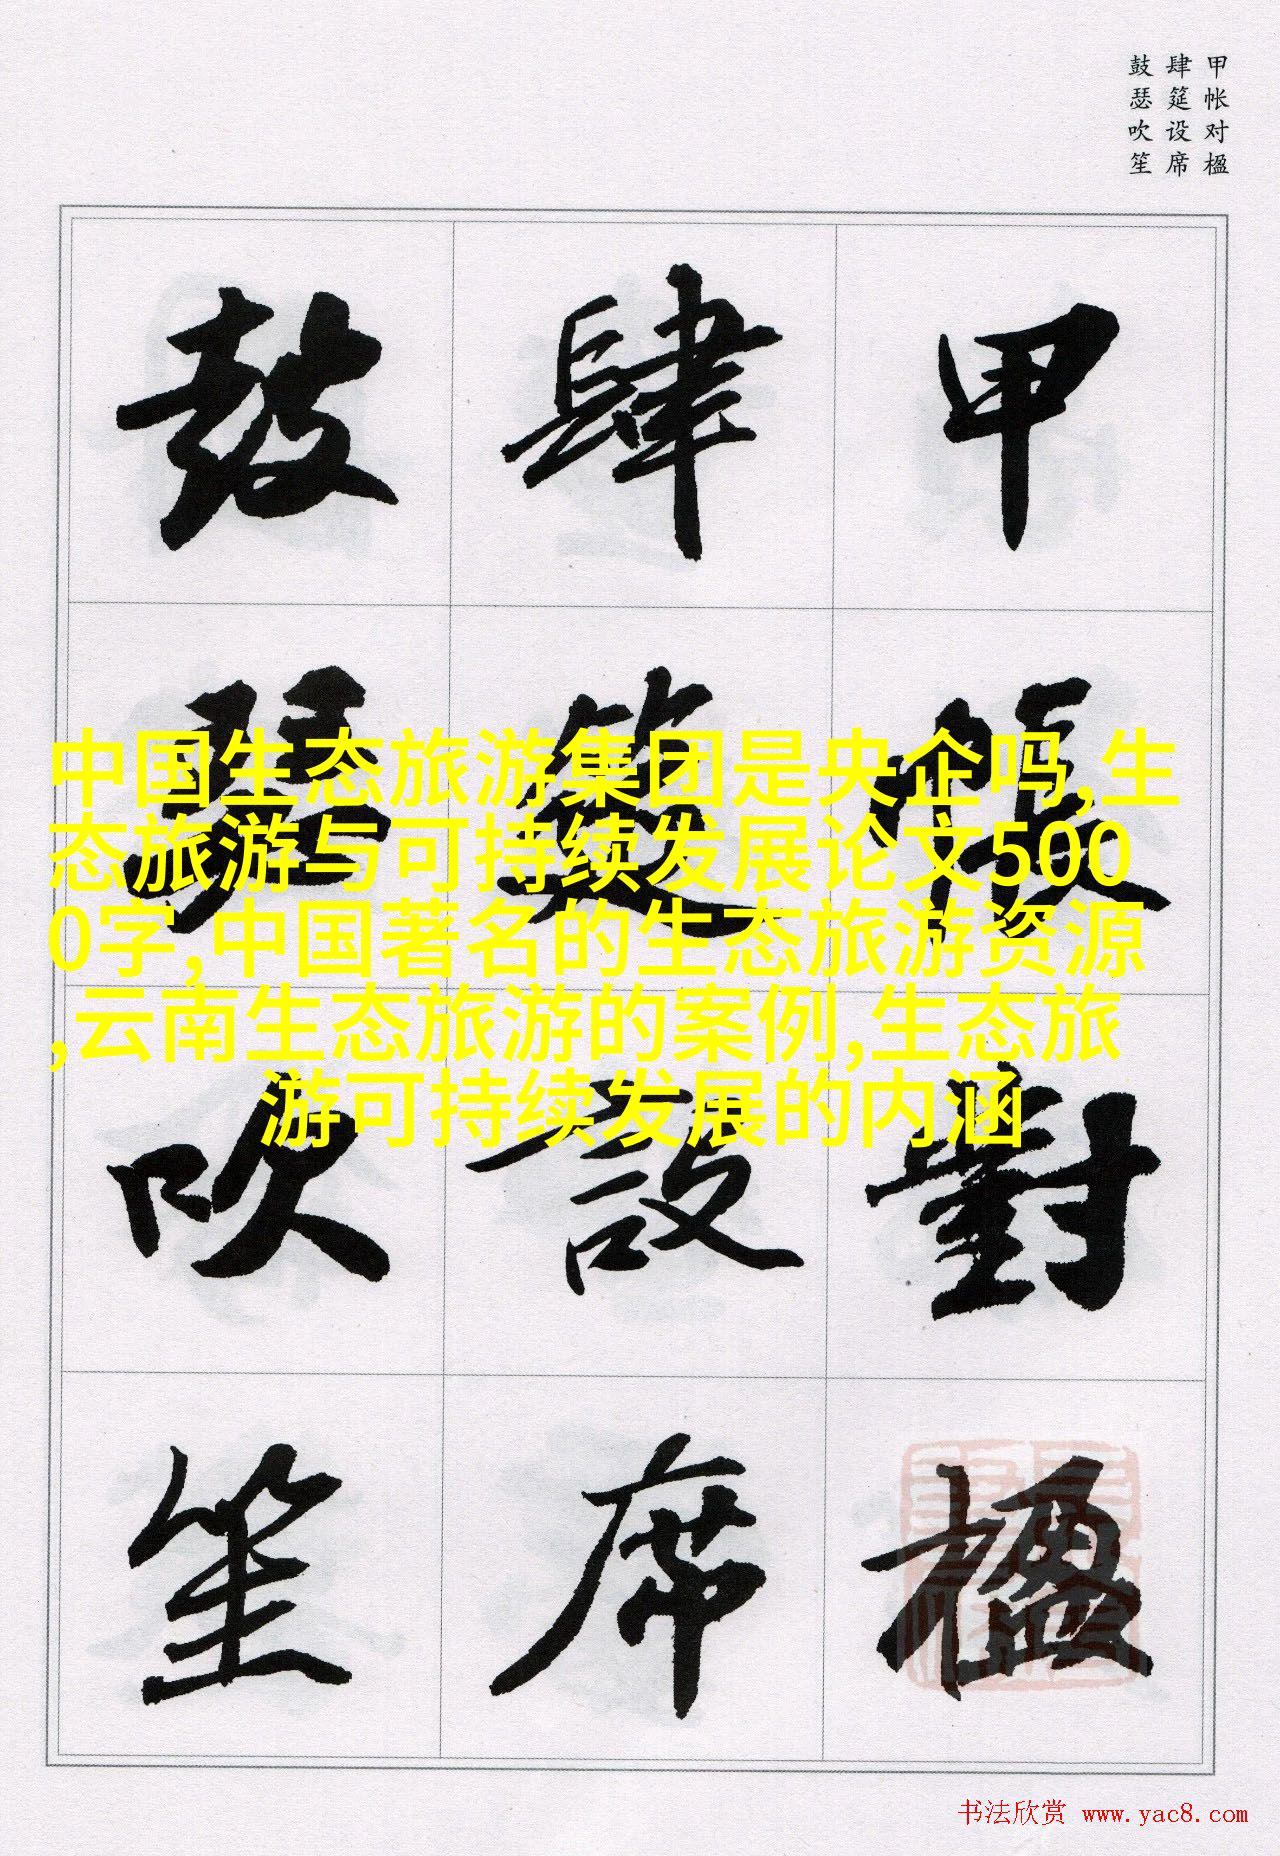 甲帐对楹
肆筵设席
鼓瑟吹笙
甲帳對楹
肆筵設席
鼓瑟吹笙
中国生态旅游集团是央企吗,生
态旅游与可持续发展论文500
0字,中国著名的生态旅游资源
,云南生态旅游的案例,生态旅
游可持续发展的内涵
书法欣赏 www.yac8.com